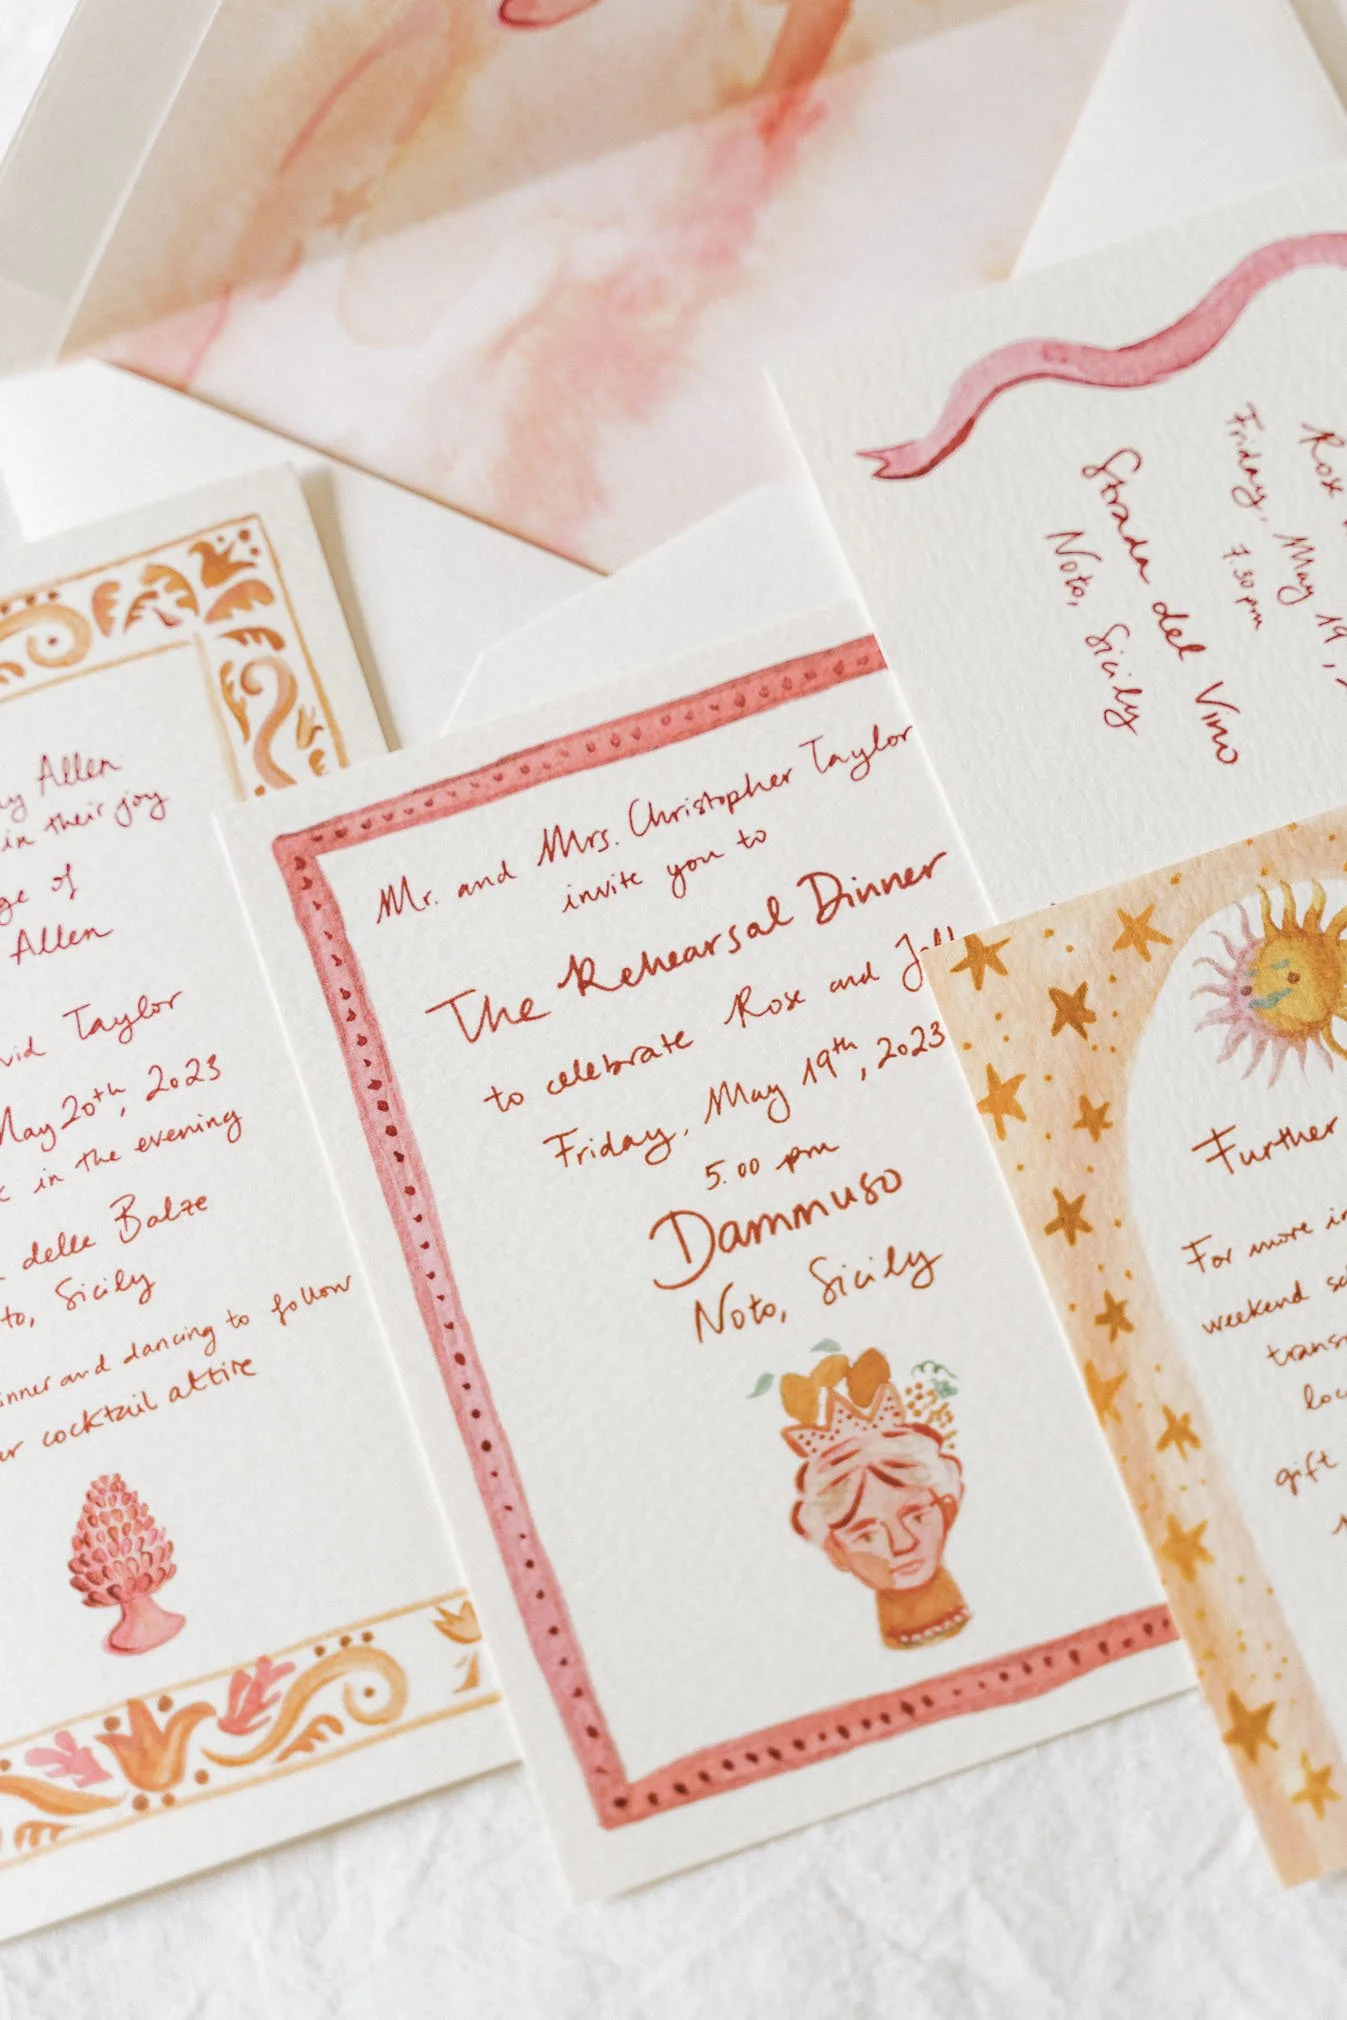 Allen
in their joy
of
Allen
Taylor
May 20th, 2023
in the evening
delle Balze
Sicily
and dancing to follow
cocktail attire
Mr. and Mrs. Christopher Taylor
invite you to
The Rehearsal Dinner
to celebrate Rose and
Friday, May 19th, 2023
5.00 pm
Dammuso
Noto, Sicily
Rose
Friday, May 19,
7.30 pm
Strada del Vino
Noto, Sicily
Further
For more
weekend
gift